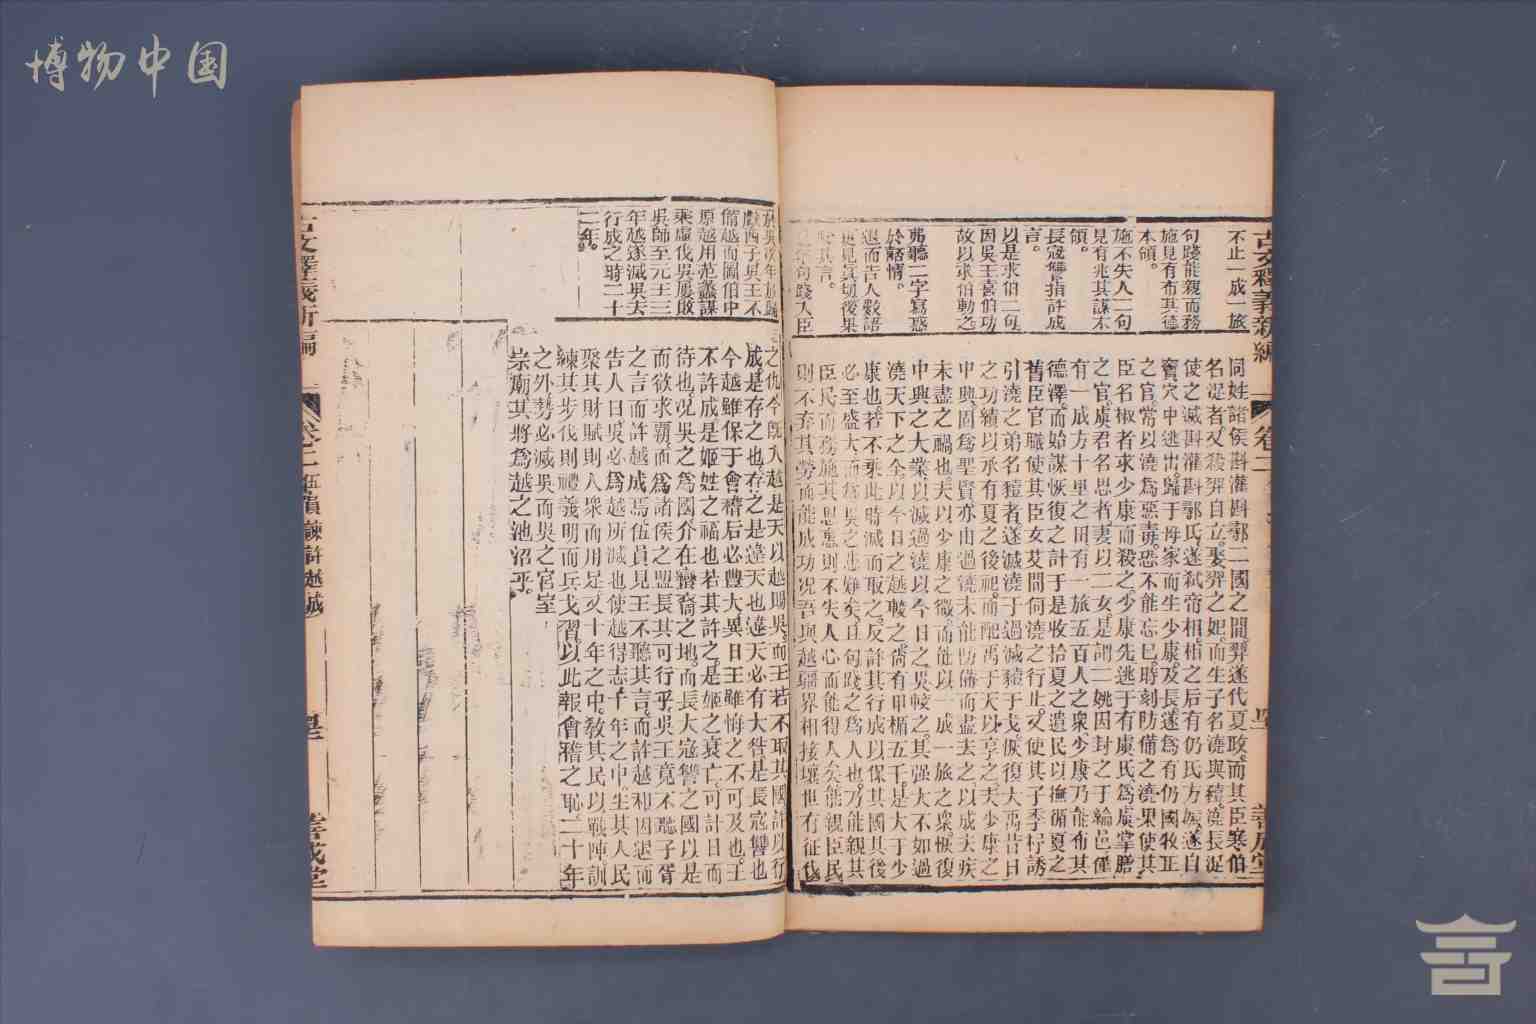 博物中国
不止一成一旅
句踐能親而務
施見有布其德
本領。
施不失人二句
見有兆其謀本
領。
長寇讐指許成
言。
以是求伯二句
因吳王喜伯功
故以求伯動之
弗聽二字寫惑
於嬖情。
退而告人數語
更見眞切後果
同姓諸侯斟灌斟鄩二國之間羿遂代夏政而其臣寒伯
名浞者又殺羿自立娶羿之妃而生子名澆與豷澆長浞
使之滅斟灌斟鄩氏遂弑帝相相之后有仍氏方娠遂自
竇穴中逃出歸于母家而生少康及長遂爲有仍國牧正
之官常以澆爲惡毒恐不能忘巳時刻防備之澆果使其
臣名椒者求少康而殺之少康先逃于有虞氏爲虞掌膳
之官虞君名思者妻以二女是謂二姚因封之于綸邑僅
有一成方十里之田有一旅五百人之衆少康乃能布其
德澤而始謀恢復之計于是收拾夏之遺民以撫循夏之
舊臣官職使其臣女艾間伺澆之行止又使其子季杼誘
引澆之弟名豷者遂滅澆于過滅豷于戈恢復大禹昔日
之功績以承有夏之後祀而配禹于天以享之夫少康之
中興固爲聖賢亦由過澆未能防備而盡去之以成大疾
未盡之禍也夫以少康之微而能以一成一旅之衆恢復
中興之大業以滅過澆以今日之吳較之其强大不如過
澆天下之全以今日之越較之尚有甲楯五千是大于少
康也若不乘此時滅而取之反許其行成以保其國其後
必至盛大而爲吳之悲難矣且句踐之爲人也乃能親其
臣民而務施其恩惠則不失人心而能得人矣能親臣民
則不弃其勞而能成功况吾與越疆界相接壤世有征伐
古文釋義新編
卷二
善成堂
備越而圖伯中
原越用范蠡謀
乘虛伐吳屢敗
吳師至元王三
年越遂滅吳去
行成之時二十
二年。
之仇今旣入越是天以越賜吳而王若不取其國許以行
成是存之也存之是違天也違天必有大咎是長寇讐也
今越雖保于會稽后必豊大異日王雖悔之不可及也王
不許成是姬姓之福也若其許之是姬之衰亡可計日而
待也况吳之爲國介在蠻裔之地而長大寇讐之國以是
而欲求霸而爲諸侯之盟長其可行乎吳王竟不聽子胥
之言而許越成焉伍員見王不聽其言而許越和因退而
告人日吳必爲越所滅也使越得志十年之中生其人民
聚其財賦則人衆而用足又十年之中教其民以戰陣訓
練其步伐則禮義明而兵戈習以此報會稽之恥二十年
之外勢必滅吳而吳之宮室
宗廟其將爲越之池沼乎
古文釋義新編
卷二
伍員諫許越成
善成堂